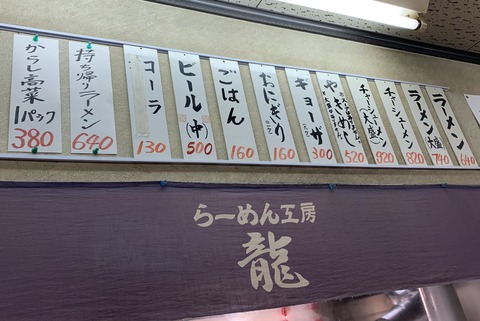 ラーメン
640
ラーメン
大盛
740
チャーシューメン
820
チャーシューメン
(大盛)
920
やきめし
520
ギョーザ
300
おにぎり
160
ごはん
160
ビール(中)
500
コーラ
130
持ち帰りラーメン
640
からし高菜
1パック
380
らーめん工房
龍